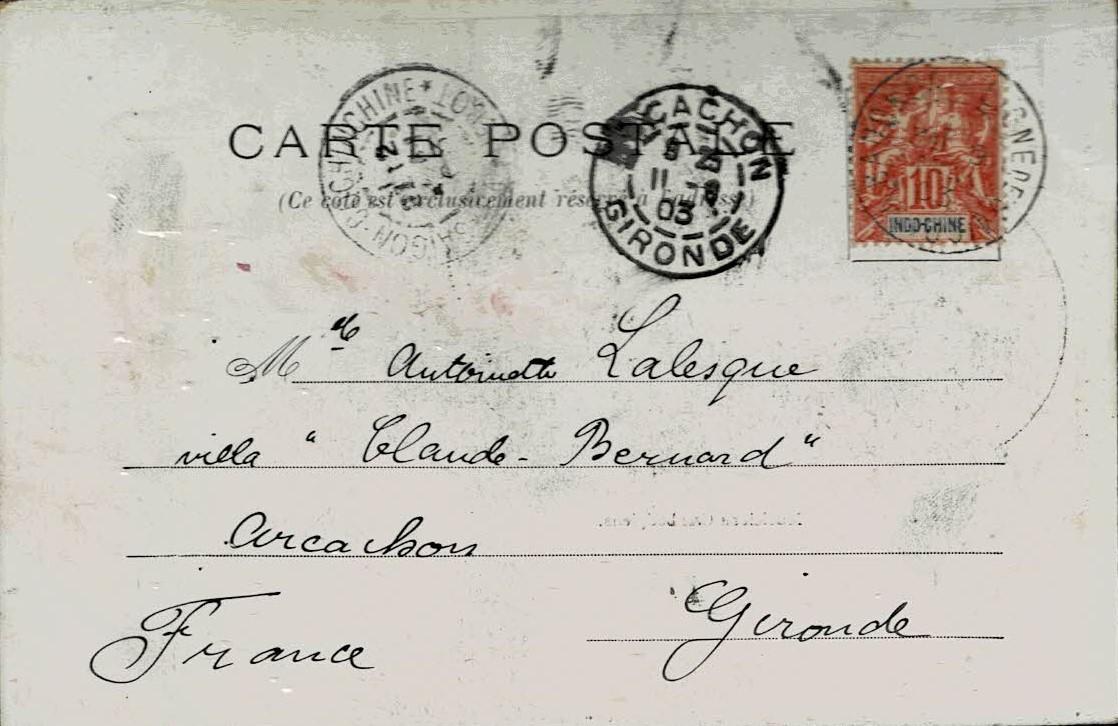 CARTE POSTALE
(Ce côté est exclusivement réservé à l'adresse)
COCHINCHINE
SAIGON
ARCACHON
11
03
GIRONDE
10
INDO-CHINE
Mlle Antoinette Lalesque
villa "Claude-Bernard"
Arcachon
Gironde
France